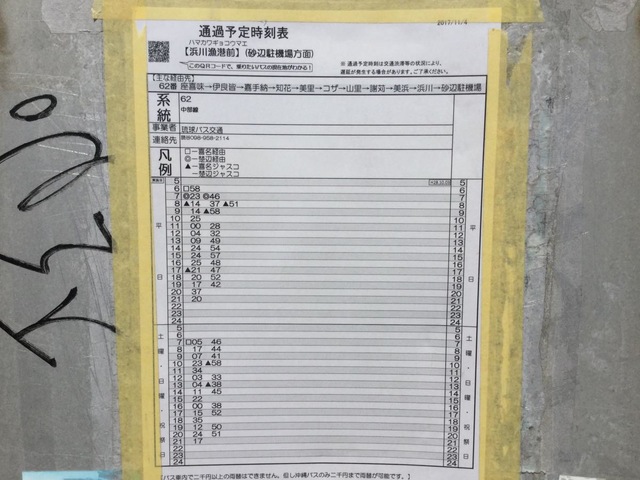 2017/11/4
通過予定時刻表
ハマカワギョコウマエ
【浜川漁港前】(砂辺駐機場方面)
このQRコードで、乗りたいバスの現在地がわかる!
※ 通過予定時刻は交通渋滞等の状況により、
遅延が発生する場合があります。ご了承ください。
【主な経由先】
62番 座喜味→伊良皆→嘉手納→知花→美里→コザ→山里→謝苅→美浜→浜川→砂辺駐機場
系統 62
中部線
事業者 琉球バス交通
連絡先 098-958-2114
凡例 □-喜名経由
◎-楚辺経由
▲-喜名ジャスコ
-楚辺ジャスコ
平日
5
6 □58
7 ◎23 ◎46
8 ▲14 37 ▲51
9 14 ▲58
10 25
11 00 28
12 04 32
13 09 49
14 24 54
15 24 57
16 25 48
17 ▲21 47
18 20 52
19 17 42
20 37
21 20
22
23
24
土曜・日曜・祝祭日
5
6
7 □05 46
8 17 44
9 07 41
10 23 ▲58
11 34
12 03 33
13 04 ▲38
14 11 45
15 22
16 00 38
17 15 52
18 35
19 12 50
20 24 51
21 17
22
23
24
【バス車内で二千円以上の両替はできません。但し沖縄バスのみ二千円まで両替が可能です。】